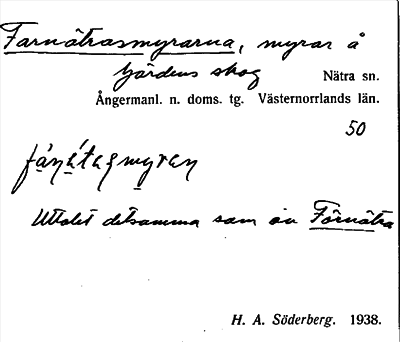 Farnätrasmyrarna, myrar å
fjärdens skog Nätra sn.
Ångermanl. n. doms. tg. Västernorrlands län.
50
fá̱ṉátaṣmyran
Uttalet detsamma som av Förnätra
H. A. Söderberg. 1938.